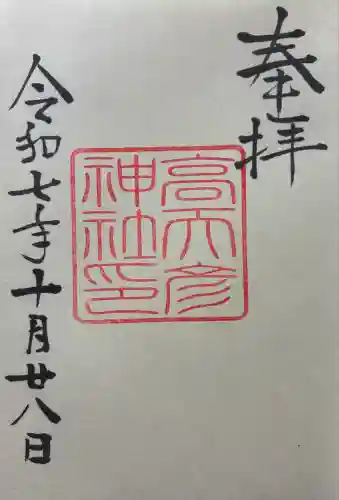 奉拝
高天彦
神社印
令和七年十月廿八日